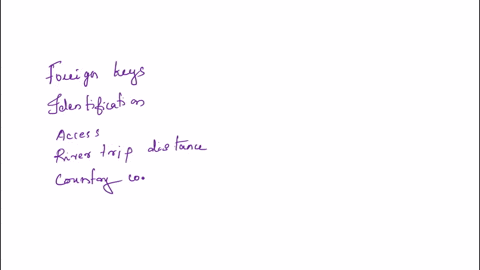 Foreign keys
Identification
Access
River trip distance
Country co